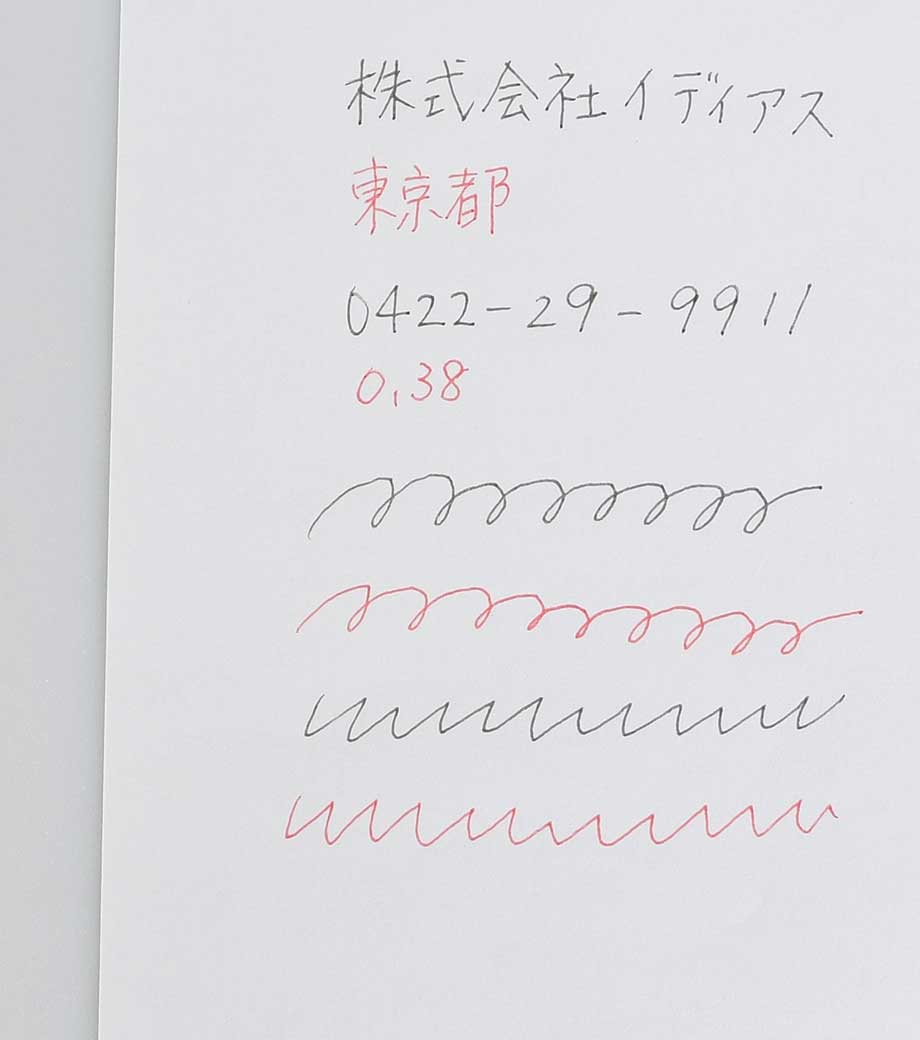 株式会社イディアス
東京都
0422-29-9911
0.38